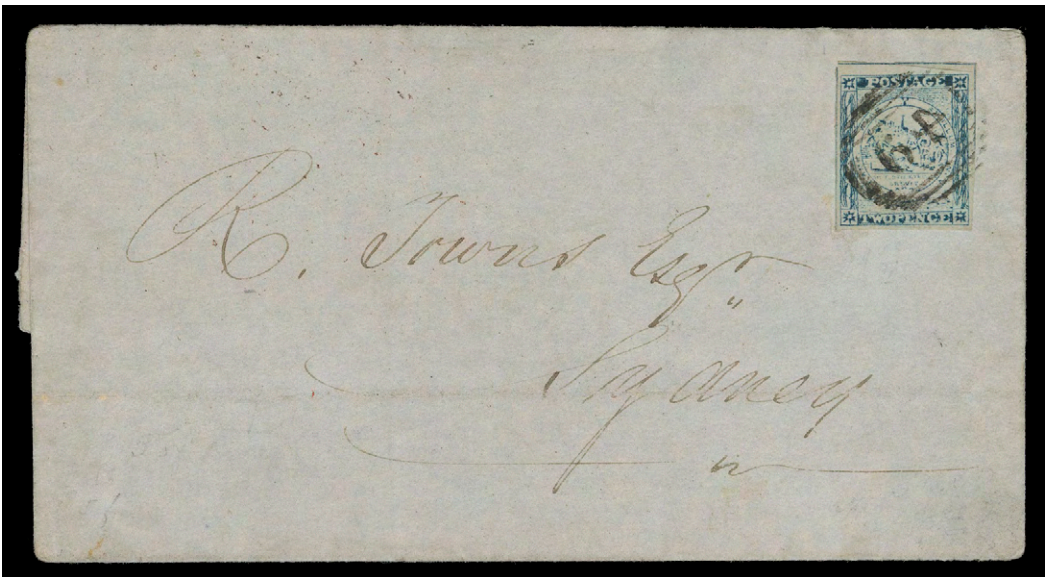 POSTAGE
64
TWOPENCE
R. Towns Esqr
Sydney